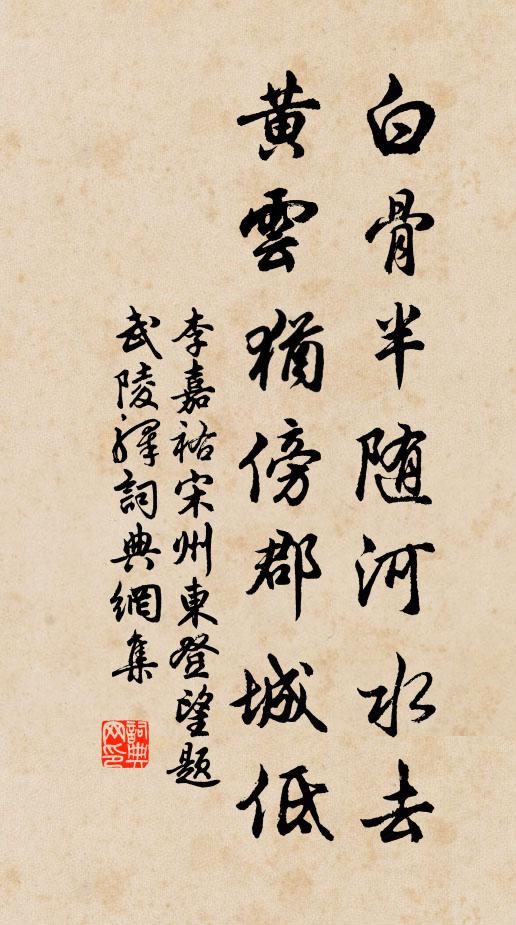 白骨半随河水去
黃雲猶傍郡城低
李嘉祐宋州東登望題
武陵驛詞典網集
詞典
网印